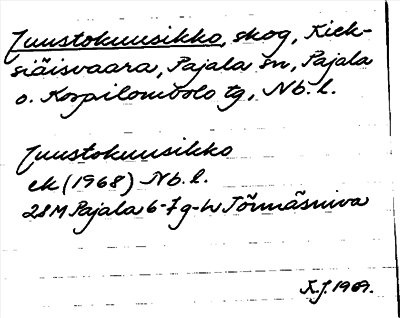 Juustokuusikko, skog, Kiek-
siäisvaara, Pajala sn, Pajala
o. Korpilombolo tg, Nb. l.
Juustokuusikko
ek (1968) Nb. l.
28M Pajala 6-7 g-h Jõnnäsniva
K.J. 1969.